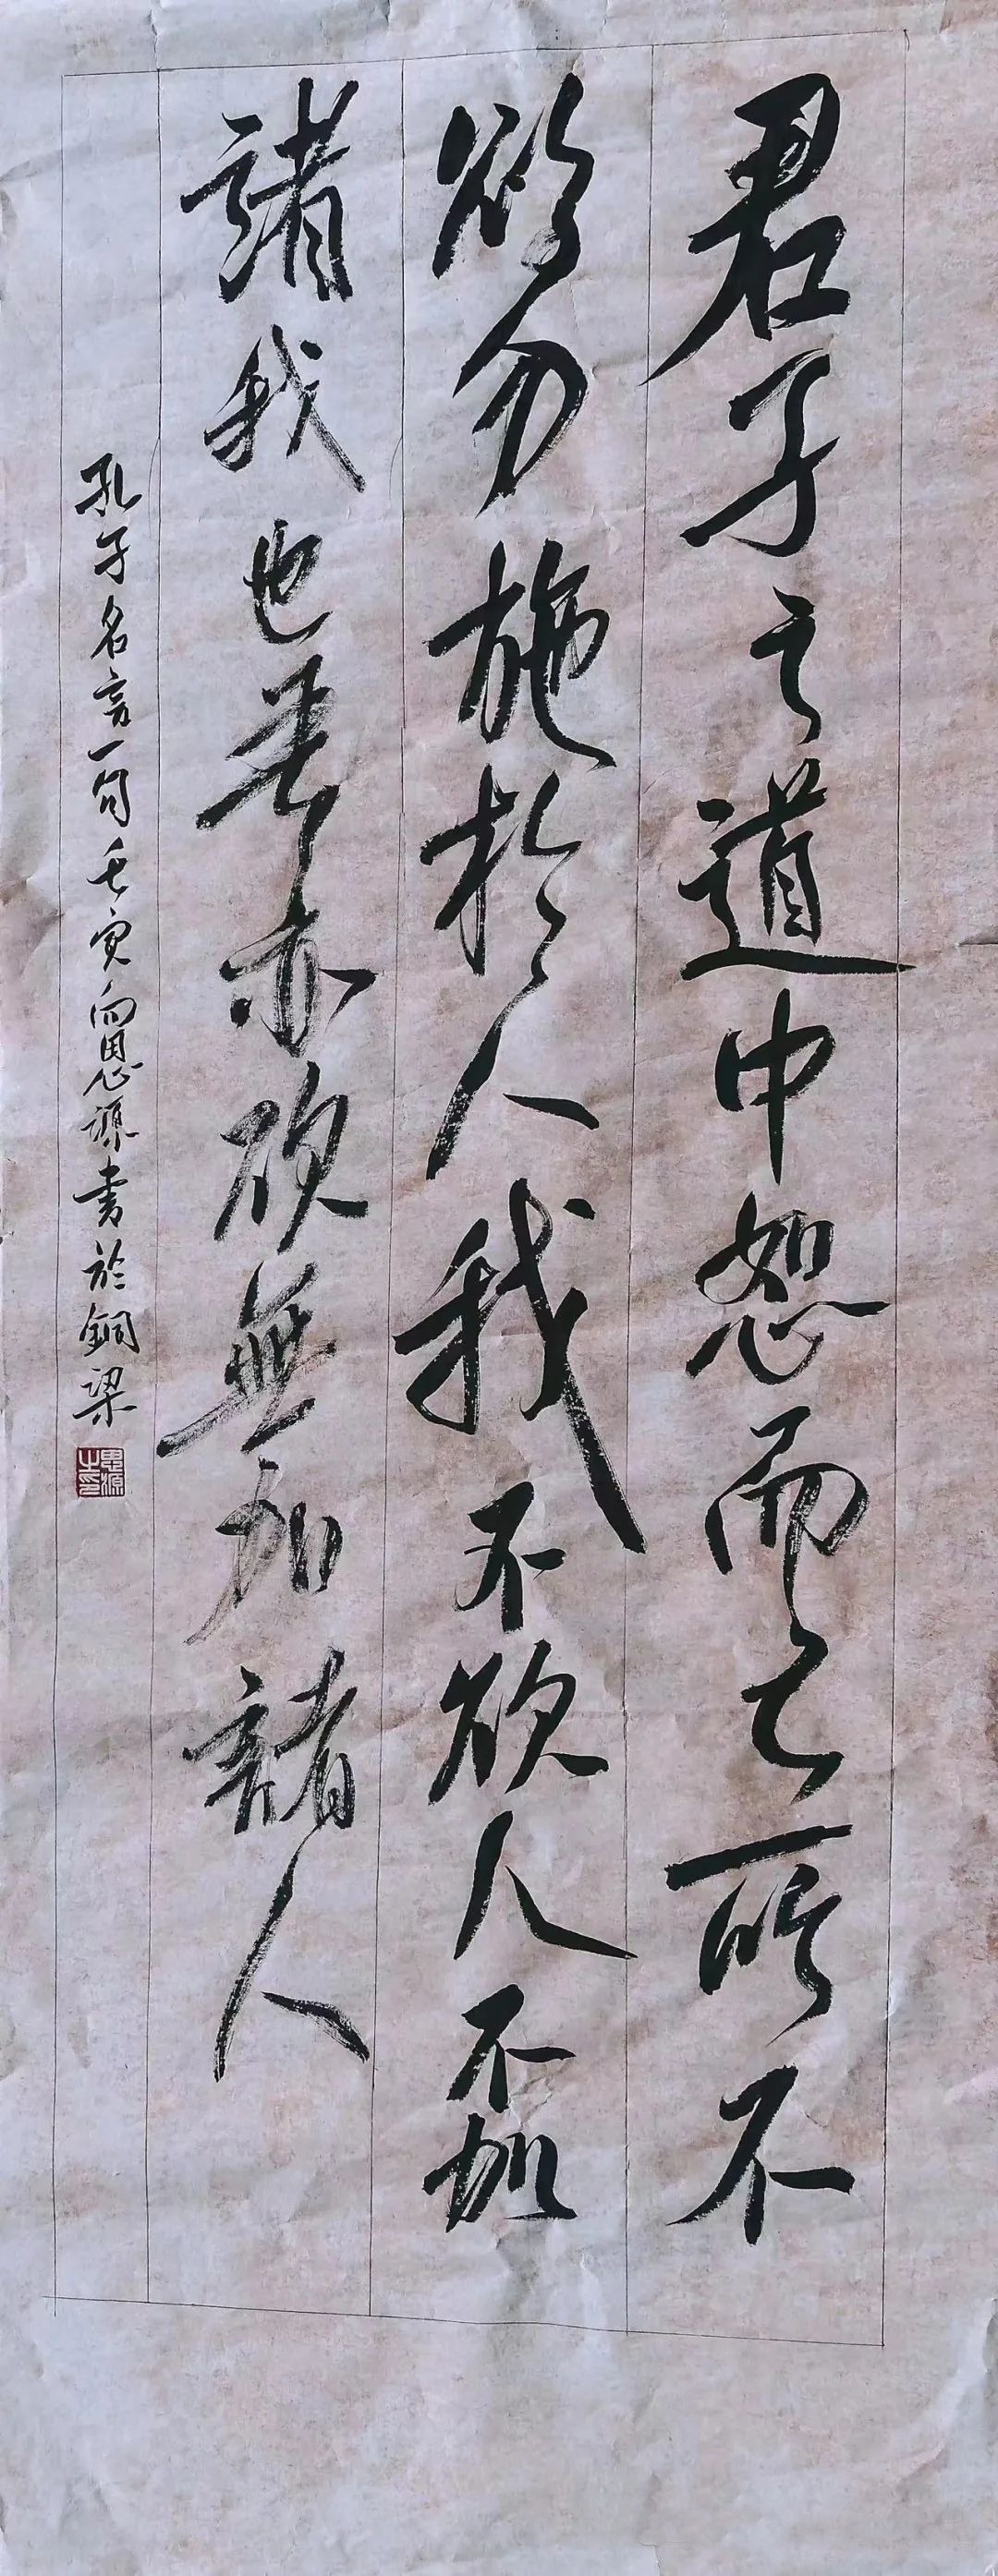 君子之道中恕而已所不
欲勿施於人我不欲人不加
諸我也吾亦欲無加諸人
孔子名言一句壬寅向思源書於銅梁
思源之印